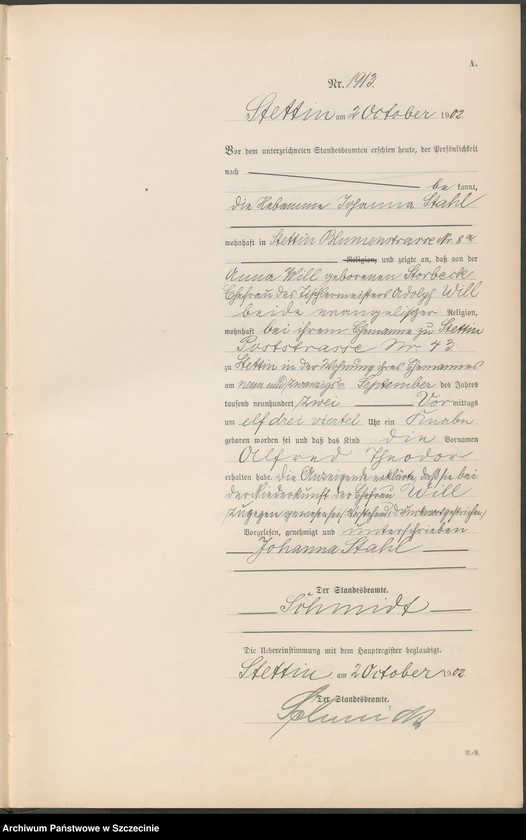 A.
Nr. 1913.
Stettin am 2 October 1902
Vor dem unterzeichneten Standesbeamten erschien heute, der Persönlichkeit
nach be kannt,
die Hebamme Johanna Stahl
wohnhaft in Stettin Blumenstrasse Nr. 8a
Religion, und zeigte an, daß von der
Anna Will geborenen Storbeck
Ehefrau des Tischlermeisters Adolph Will
beide evangelischer Religion,
wohnhaft bei ihrem Ehemanne zu Stettin
Poststrasse Nr 43
zu Stettin in der Wohnung ihres Ehemannes
am neun und zwanzigsten September des Jahres
tausend neunhundert zwei Vor mittags
um elf drei viertel Uhr ein Knabe
geboren worden sei und daß das Kind die Vornamen
Alfred Theodor
erhalten habe. Die Anzeigende erklärte, daß sie bei
der Niederkunft der Ehefrau Will
zugegen gewesen sei. (Vorstehend 1 Druckwort gestrichen)
Vorgelesen, genehmigt und unterschrieben
Johanna Stahl
Der Standesbeamte.
Schmidt
Die Uebereinstimmung mit dem Hauptregister beglaubigt.
Stettin am 2 October 1902
Der Standesbeamte.
Schmidt
Archiwum Państwowe w Szczecinie